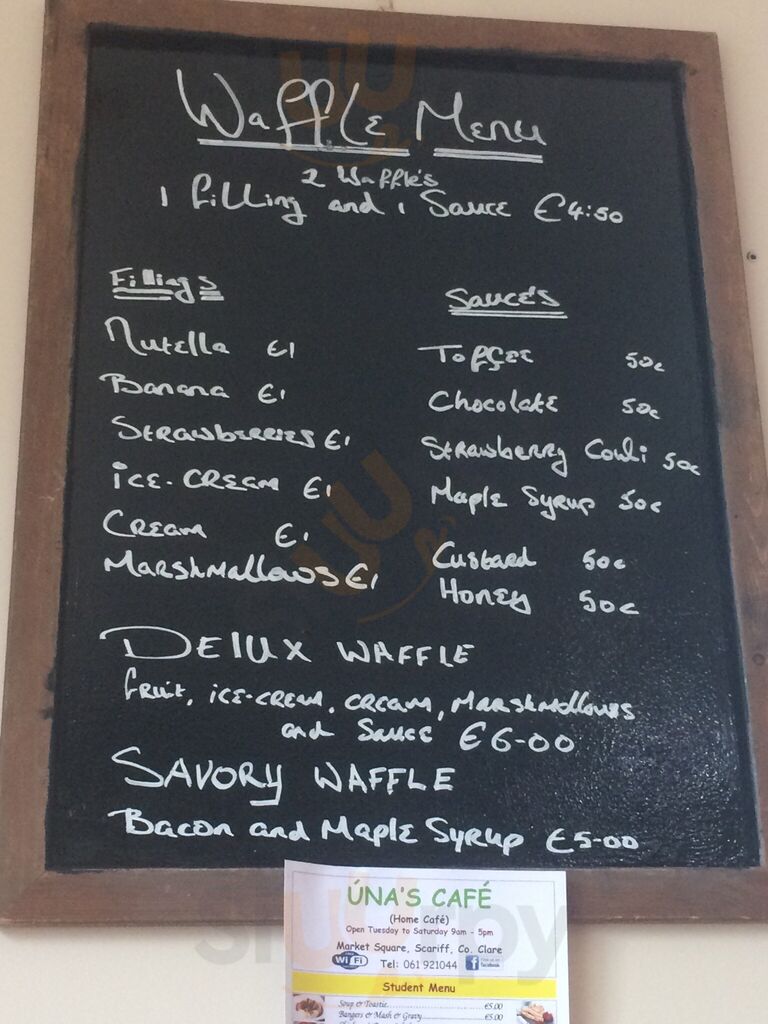 Waffle Menu
2 Waffle's
1 filling and 1 Sauce €4:50
Fillings
Nutella €1
Banana €1
Strawberries €1
ice-cream €1
Cream €1
Marshmallows €1
Sauce's
Toffee 50c
Chocolate 50c
Strawberry Couli 50c
Maple Syrup 50c
Custard 50c
Honey 50c
Delux Waffle
fruit, ice-cream, cream, Marshmallows
and Sauce €6-00
Savory Waffle
Bacon and Maple Syrup €5-00
ÚNA'S CAFÉ
(Home Café)
Open Tuesday to Saturday 9am - 5pm
Market Square, Scariff, Co. Clare
Wi Fi Tel: 061 921044 f facebook
Student Menu
Soup & Toastie €5.00
Bangers & Mash & Gravy €5.00